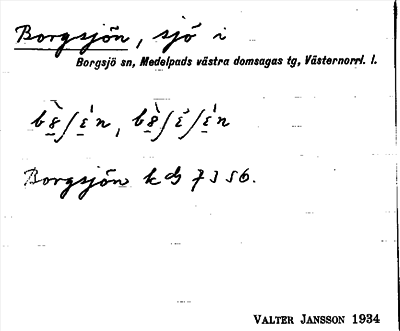 Borgsjön, sjö i
Borgsjö sn, Medelpads västra domsagas tg, Västernorrl. l.
Borgsjön kds 7356.
VALTER JANSSON 1934